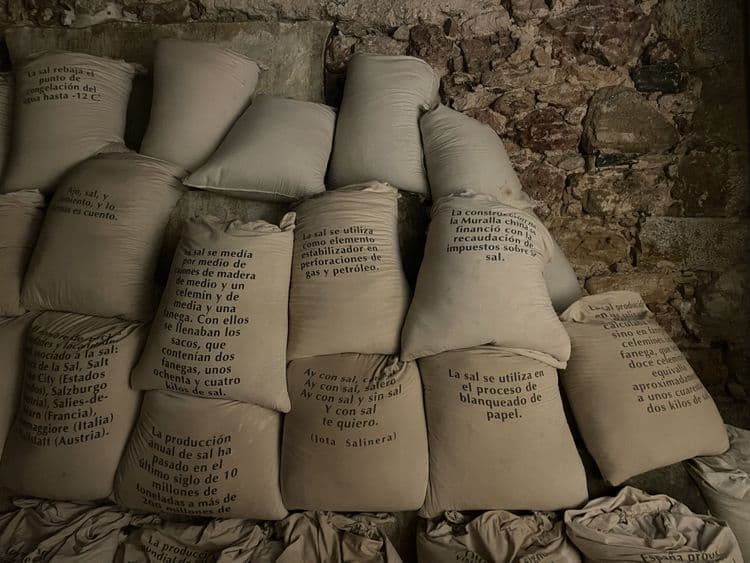 La sal rebaja el
punto de
congelación del
agua hasta -12 C.
Ajo, sal, y
y lo
es cuento.
La sal se medía
por medio de
cajones de madera
de medio y un
celemín y de
media y una
fanega. Con ellos
se llenaban los
sacos, que
contenían dos
fanegas, unos
ochenta y cuatro
kilos de sal.
La sal se utiliza
como elemento
estabilizador en
perforaciones de
gas y petróleo.
La construcción
Muralla china
financió con la
recaudación de
impuestos sobre
sal.
La sal producida
sino en
celemines
fanega, que
doce celemines
equivalía
aproximada
a unos cuaren
dos kilos de
asociado a la sal:
de la Sal, Salt
City (Estados
Salzburgo
Salies-de-
(Francia),
(Italia)
(Austria).
La producción
anual de sal ha
pasado en el
último siglo de 10
millones de
toneladas a más de
200 millones de
Ay con sal,
Ay con sal, salero
Ay con sal y sin sal
Y con sal
te quiero.
(Jota Salinera)
La sal se utiliza en
el proceso de
blanqueado de
papel.
La producción
mundial de sal
España